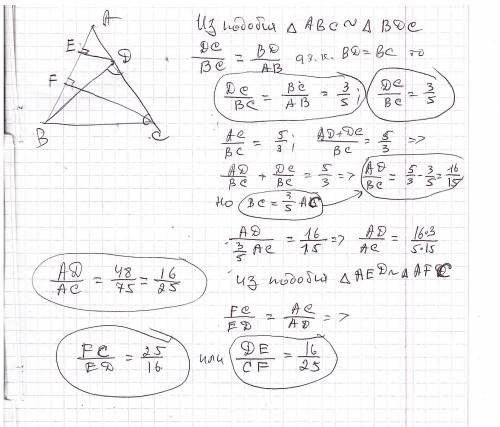 A
E
D
F
B
C
Из подобия △ ABC ~ △ BDC
DC/BC = BD/AB, а т.к. BD = BC то
DC/BC = BC/AB = 3/5; DC/BC = 3/5
AC/BC = 5/3; AD+DC/BC = 5/3 =>
AD/BC + DC/BC = 5/3 => AD/BC = 5/3 - 3/5 = 16/15
Но BC = 3/5 AC
AD / 3/5 AC = 16/15 => AD/AC = 16·3/5·15
AD/AC = 48/75 = 16/25
Из подобия △ AED ~ △ AFC
FC/ED = AC/AD =>
FC/ED = 25/16 или DE/CF = 16/25